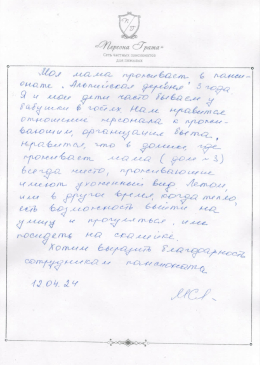 «Торкона Гранд»
Сеть частных пансионатов
для пожилых
Моя мама проживает в панси-
онате "Алтуйская деревня" 3 года
Я и мои дети часто бываем у
бабушки в гостях Нам нравится
отношение персонала к прожи-
вающим, организация быта,
нравится, что в домике где
проживает мама (дом-3)
всегда чисто, проживающие
имеют ухоженный вид Летом,
или в другое время, когда тепло,
есть возможность выйти на
улицу и прогуляться, или
посидеть на скамейке.
Хотим выразить благодарность
сотрудникам пансионата
12.04.24